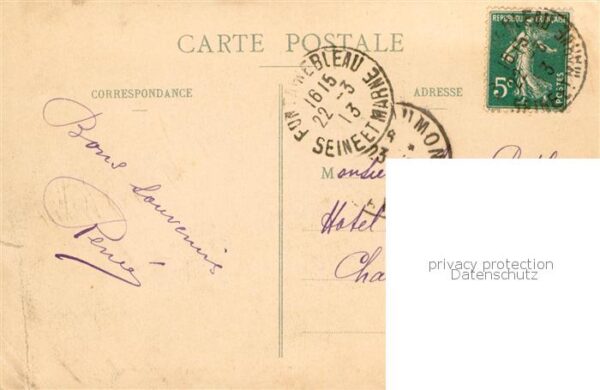 CARTE POSTALE
CORRESPONDANCE
ADRESSE
Bons Souvenirs
René
REPUBLIQUE FRANÇAISE
5c
POSTES
FONTAINEBLEAU
16 15
22 - 3
13
SEINE ET MARNE
Hotel
Cha
privacy protection
Datenschutz